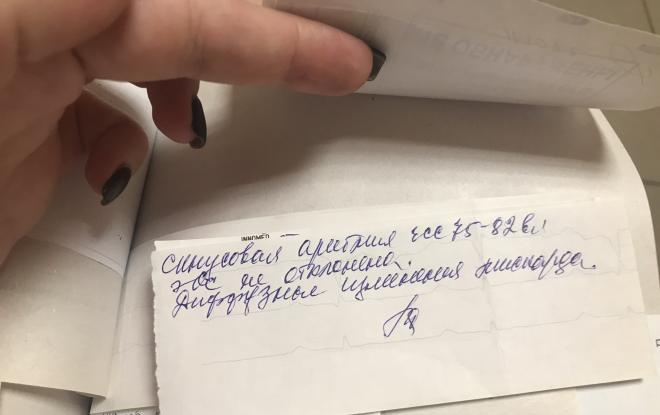 INNOMED
синусовая аритмия чсс 75-82 вл
эос не отклонена.
Диффузные изменения миокарда.